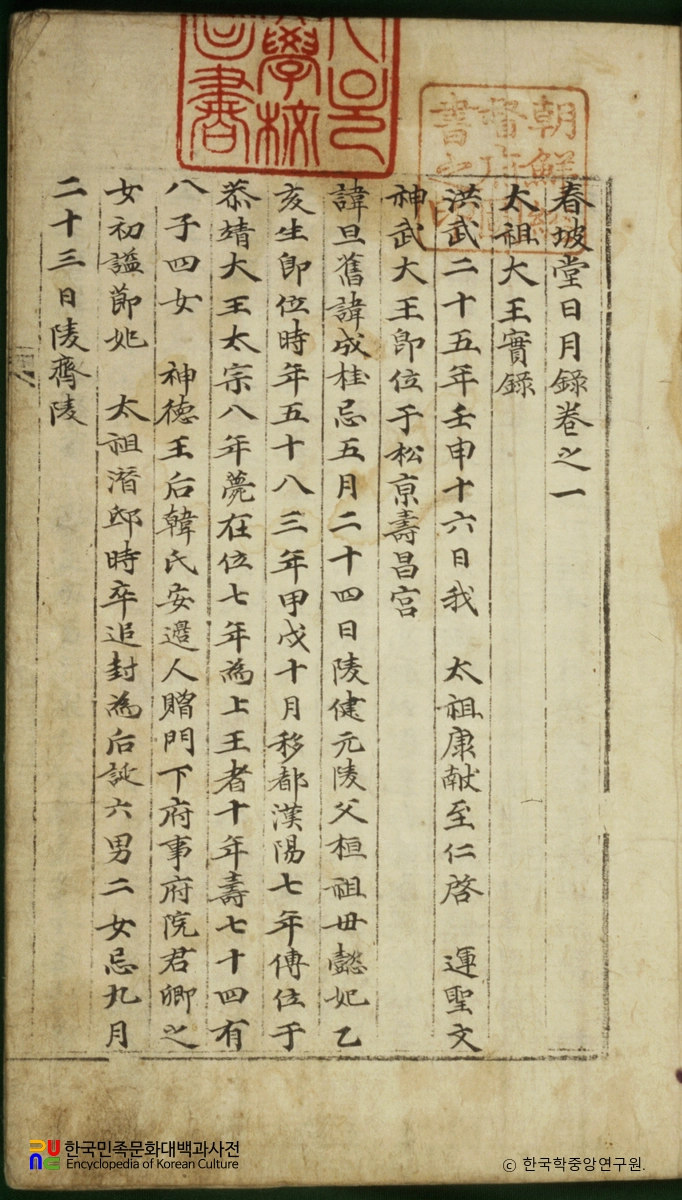 春坡堂日月錄卷之一
太祖大王實錄
洪武二十五年壬申十六日我　太祖康献至仁啓　運聖文
神武大王卽位于松京壽昌宮
諱旦舊諱成桂忌五月二十四日陵健元陵父桓祖母懿妃乙
亥生卽位時年五十八三年甲戌十月移都漢陽七年傳位于
恭靖大王太宗八年薨在位七年為上王者十年壽七十四有
八子四女　神德王后韓氏安邊人贈門下府事府院君卿之
女初諡節妃　太祖潛邸時卒追封為后誕六男二女忌九月
二十三日陵齊陵
朝鮮總
督府圖
書之印
學校
한국민족문화대백과사전
Encyclopedia of Korean Culture
© 한국학중앙연구원.